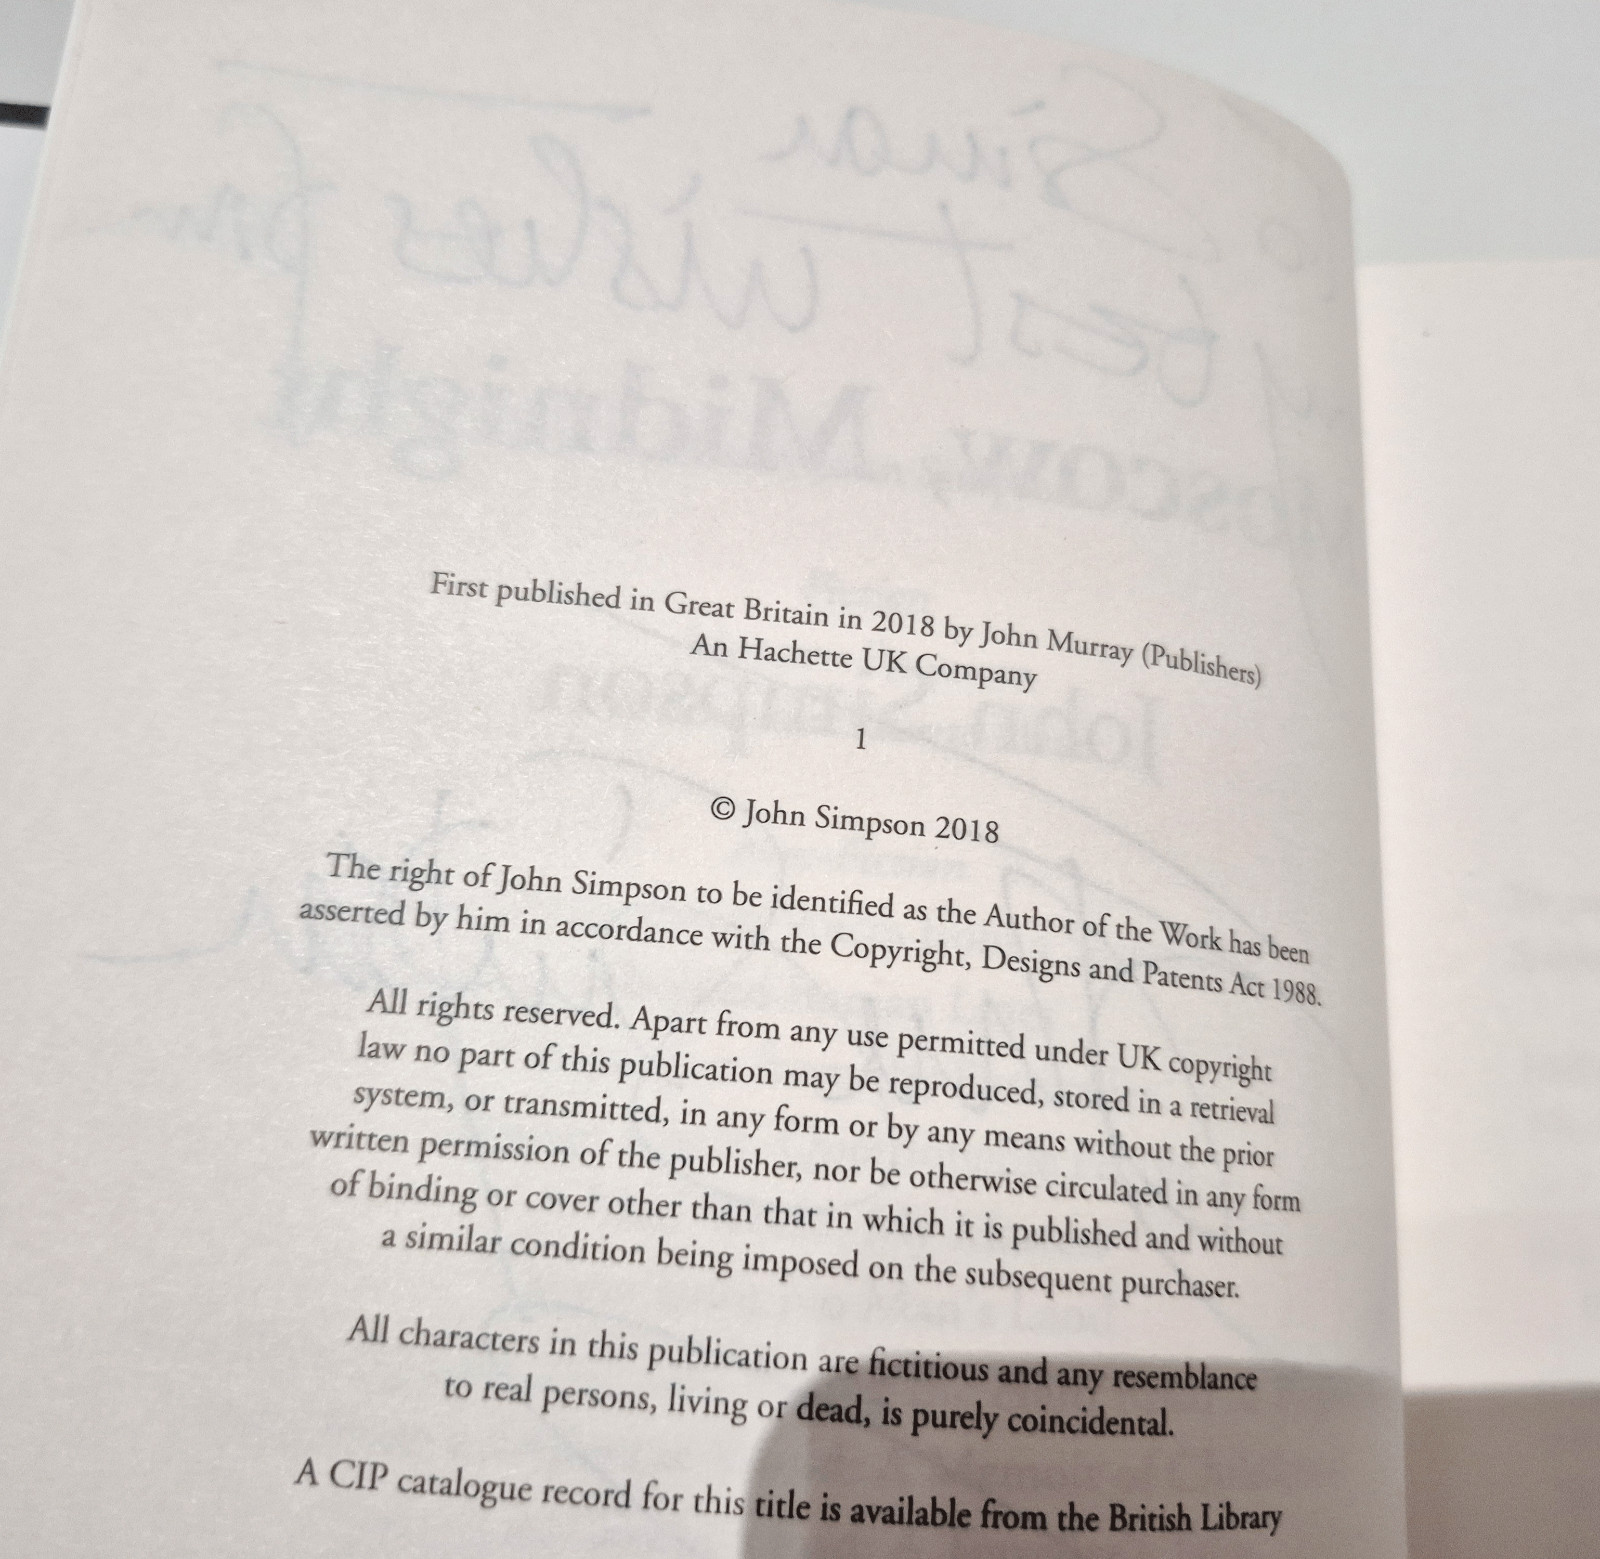 First published in Great Britain in 2018 by John Murray (Publishers)
An Hachette UK Company
1
© John Simpson 2018
The right of John Simpson to be identified as the Author of the Work has been
asserted by him in accordance with the Copyright, Designs and Patents Act 1988.
All rights reserved. Apart from any use permitted under UK copyright
law no part of this publication may be reproduced, stored in a retrieval
system, or transmitted, in any form or by any means without the prior
written permission of the publisher, nor be otherwise circulated in any form
of binding or cover other than that in which it is published and without
a similar condition being imposed on the subsequent purchaser.
All characters in this publication are fictitious and any resemblance
to real persons, living or dead, is purely coincidental.
A CIP catalogue record for this title is available from the British Library